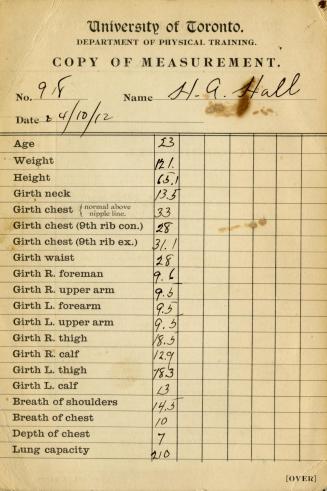 University of Toronto.
DEPARTMENT OF PHYSICAL TRAINING.
COPY OF MEASUREMENT.
No. 98 Name H. G. Hall
Date 4/10/12
Age 23
Weight 121.
Height 65.1
Girth neck 13.5
Girth chest { normal above nipple line. 33
Girth chest (9th rib con.) 28
Girth chest (9th rib ex.) 31.1
Girth waist 28
Girth R. foreman 9.6
Girth R. upper arm 9.5
Girth L. forearm 9.5
Girth L. upper arm 9.5
Girth R. thigh 18.5
Girth R. calf 12.9
Girth L. thigh 18.3
Girth L. calf 13
Breath of shoulders 14.5
Breath of chest 10
Depth of chest 7
Lung capacity 210
[OVER]